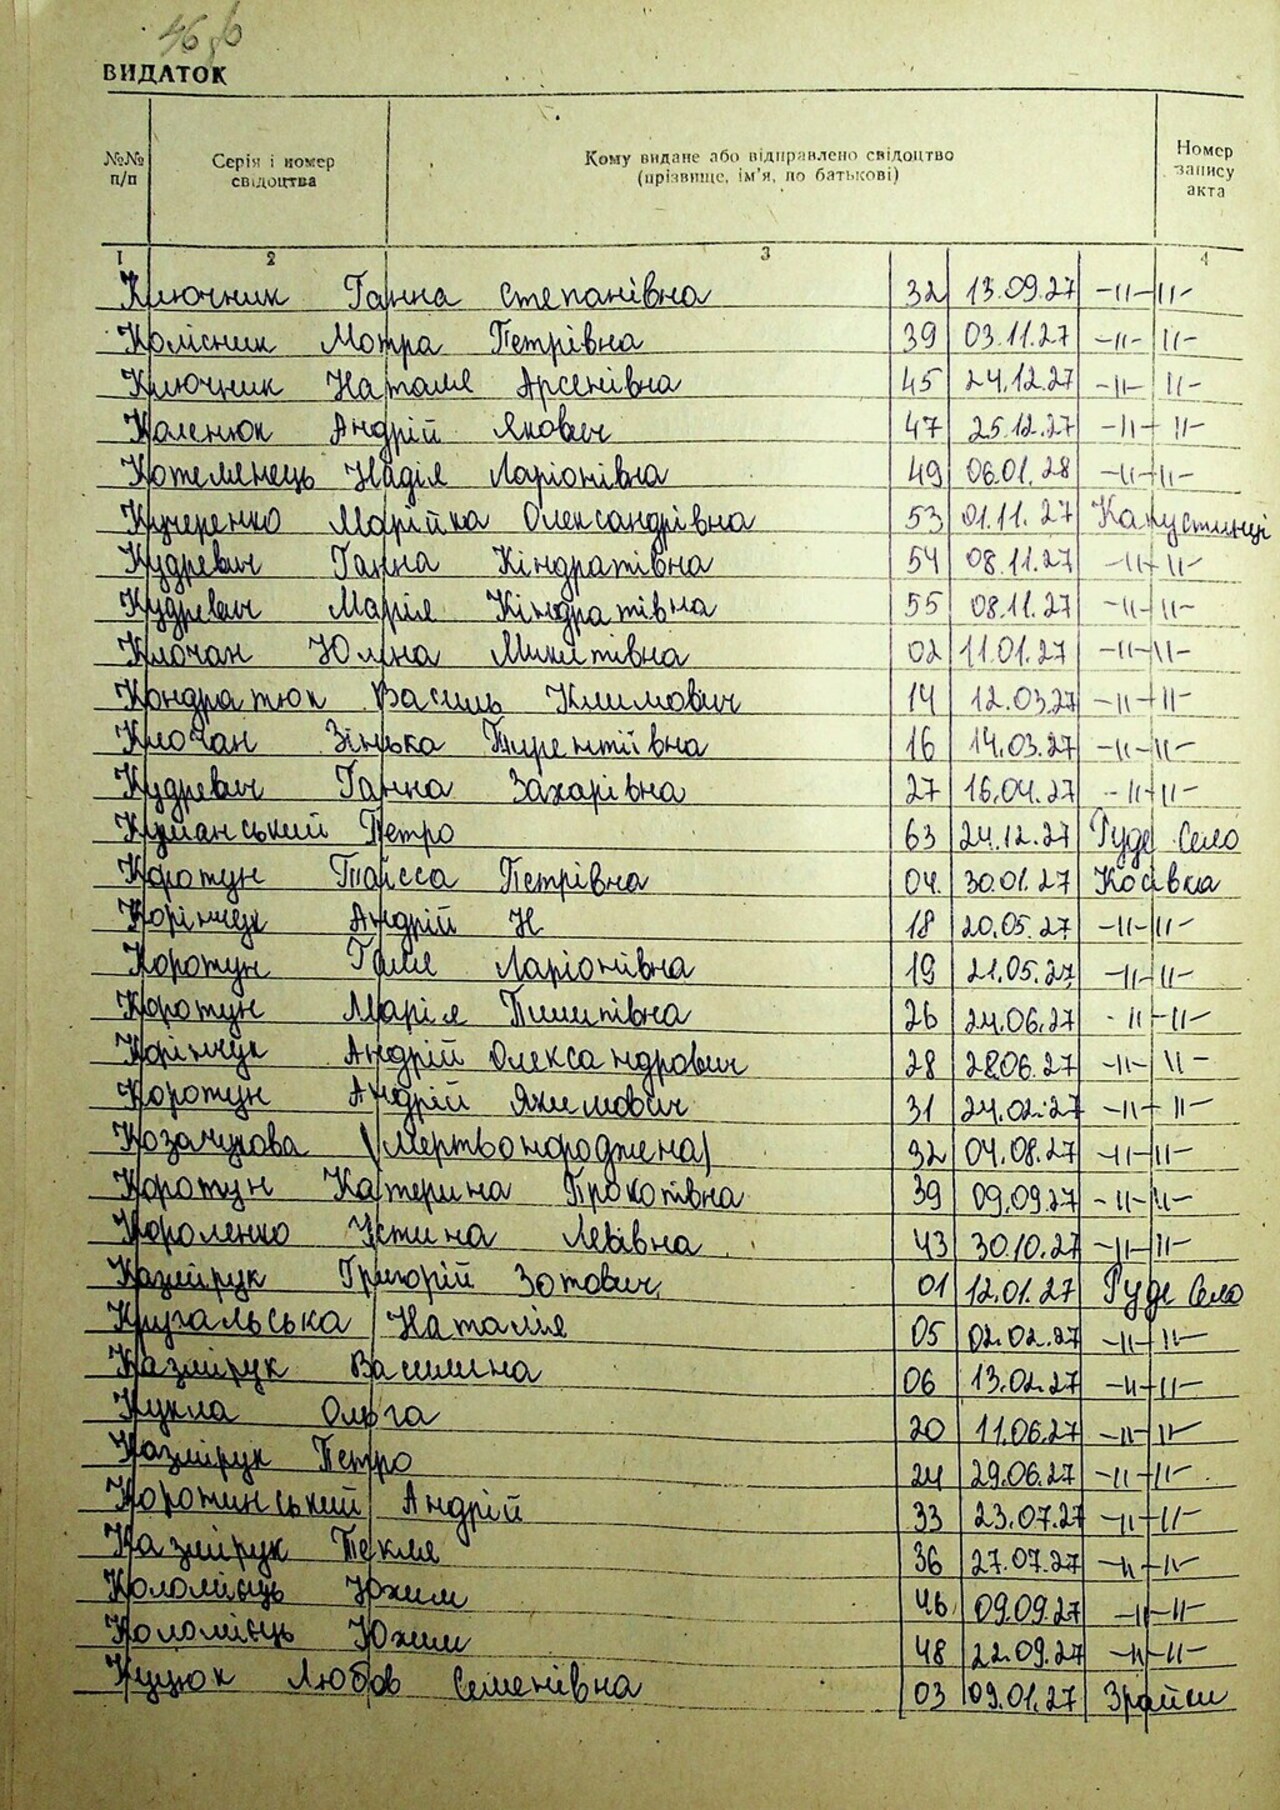 46
ВИДАТОК
№№ п/п Серія і номер свідоцтва Кому видане або відправлено свідоцтво (прізвище, ім'я, по батькові) Номер запису акта
1 2 3 4
Ключник Ганна Степанівна 32 13.09.27 -//-//-
Колісник Мотра Петрівна 39 03.11.27 -//- //-
Ключник Наталя Арсенівна 45 24.12.27 -//- //-
Каленюк Андрій Якович 47 25.12.27 -//- //-
Котелянець Надія Ларіонівна 49 06.01.28 -//-//-
Кучеренко Марійка Олександрівна 53 01.11.27 Капустинці
Кудревич Ганна Кіндратівна 54 08.11.27 -//-//-
Кудревич Марія Кіндратівна 55 08.11.27 -//-//-
Клочан Юлина Микитівна 02 11.01.27 -//-//-
Кондратюк Василь Климович 14 12.03.27 -//-//-
Клочан Зінька Тирентіївна 16 14.03.27 -//-//-
Кудревич Ганна Захарівна 27 16.04.27 -//-//-
Петро 63 24.12.27 Руде Село
Коротун Таїсса Петрівна 04. 30.01.27 Косівка
Корінчук Андрій Н 18 20.05.27 -//-//-
Коротун Галя Ларіонівна 19 21.05.27 -//-//-
Коротун Марія Пилипівна 26 24.06.27 -//-//-
Корінчук Андрій Олександрович 28 28.06.27 -//- //-
Коротун Андрій Якимович 31 24.02.27 -//- //-
Козачукова (мертвонароджена) 32 04.08.27 -//-//-
Коротун Катерина Прокопівна 39 09.09.27 -//-//-
Короленко Устина Левівна 43 30.10.27 -//-//-
Казмірук Григорій Зотович 01 12.01.27 Руде Село
Кругальська Наталія 05 02.02.27 -//-//-
Казмірук Василина 06 13.02.27 -//-//-
Кукла Ольга 20 11.06.27 -//-//-
Казмірук Петро 24 29.06.27 -//-//-
Коротинський Андрій 33 23.07.27 -//-//-
Казмірук Текля 36 27.07.27 -//-//-
Коломієць Юхим 46 09.09.27 -//-//-
Коломієць Юхим 48 22.09.27 -//-//-
Куцюк Любов Семенівна 03 09.01.27 Зрайки